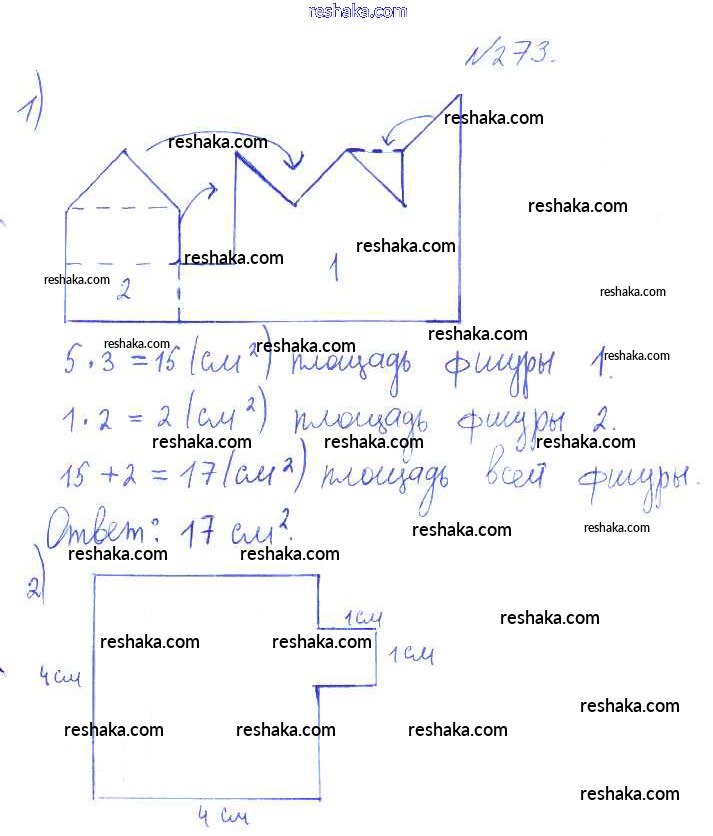 reshaka.com
№273.
1)
reshaka.com
reshaka.com
reshaka.com
reshaka.com
reshaka.com
reshaka.com
1
reshaka.com
2
reshaka.com
reshaka.com
reshaka.com
reshaka.com
reshaka.com
5·3=15 (см²) площадь фигуры 1.
1·2=2 (см²) площадь фигуры 2.
reshaka.com
reshaka.com
reshaka.com
15+2=17 (см²) площадь всей фигуры.
Ответ: 17 см².
reshaka.com
reshaka.com
reshaka.com
reshaka.com
2)
1 см
reshaka.com
reshaka.com
reshaka.com
1 см
4 см
reshaka.com
reshaka.com
reshaka.com
reshaka.com
reshaka.com
4 см